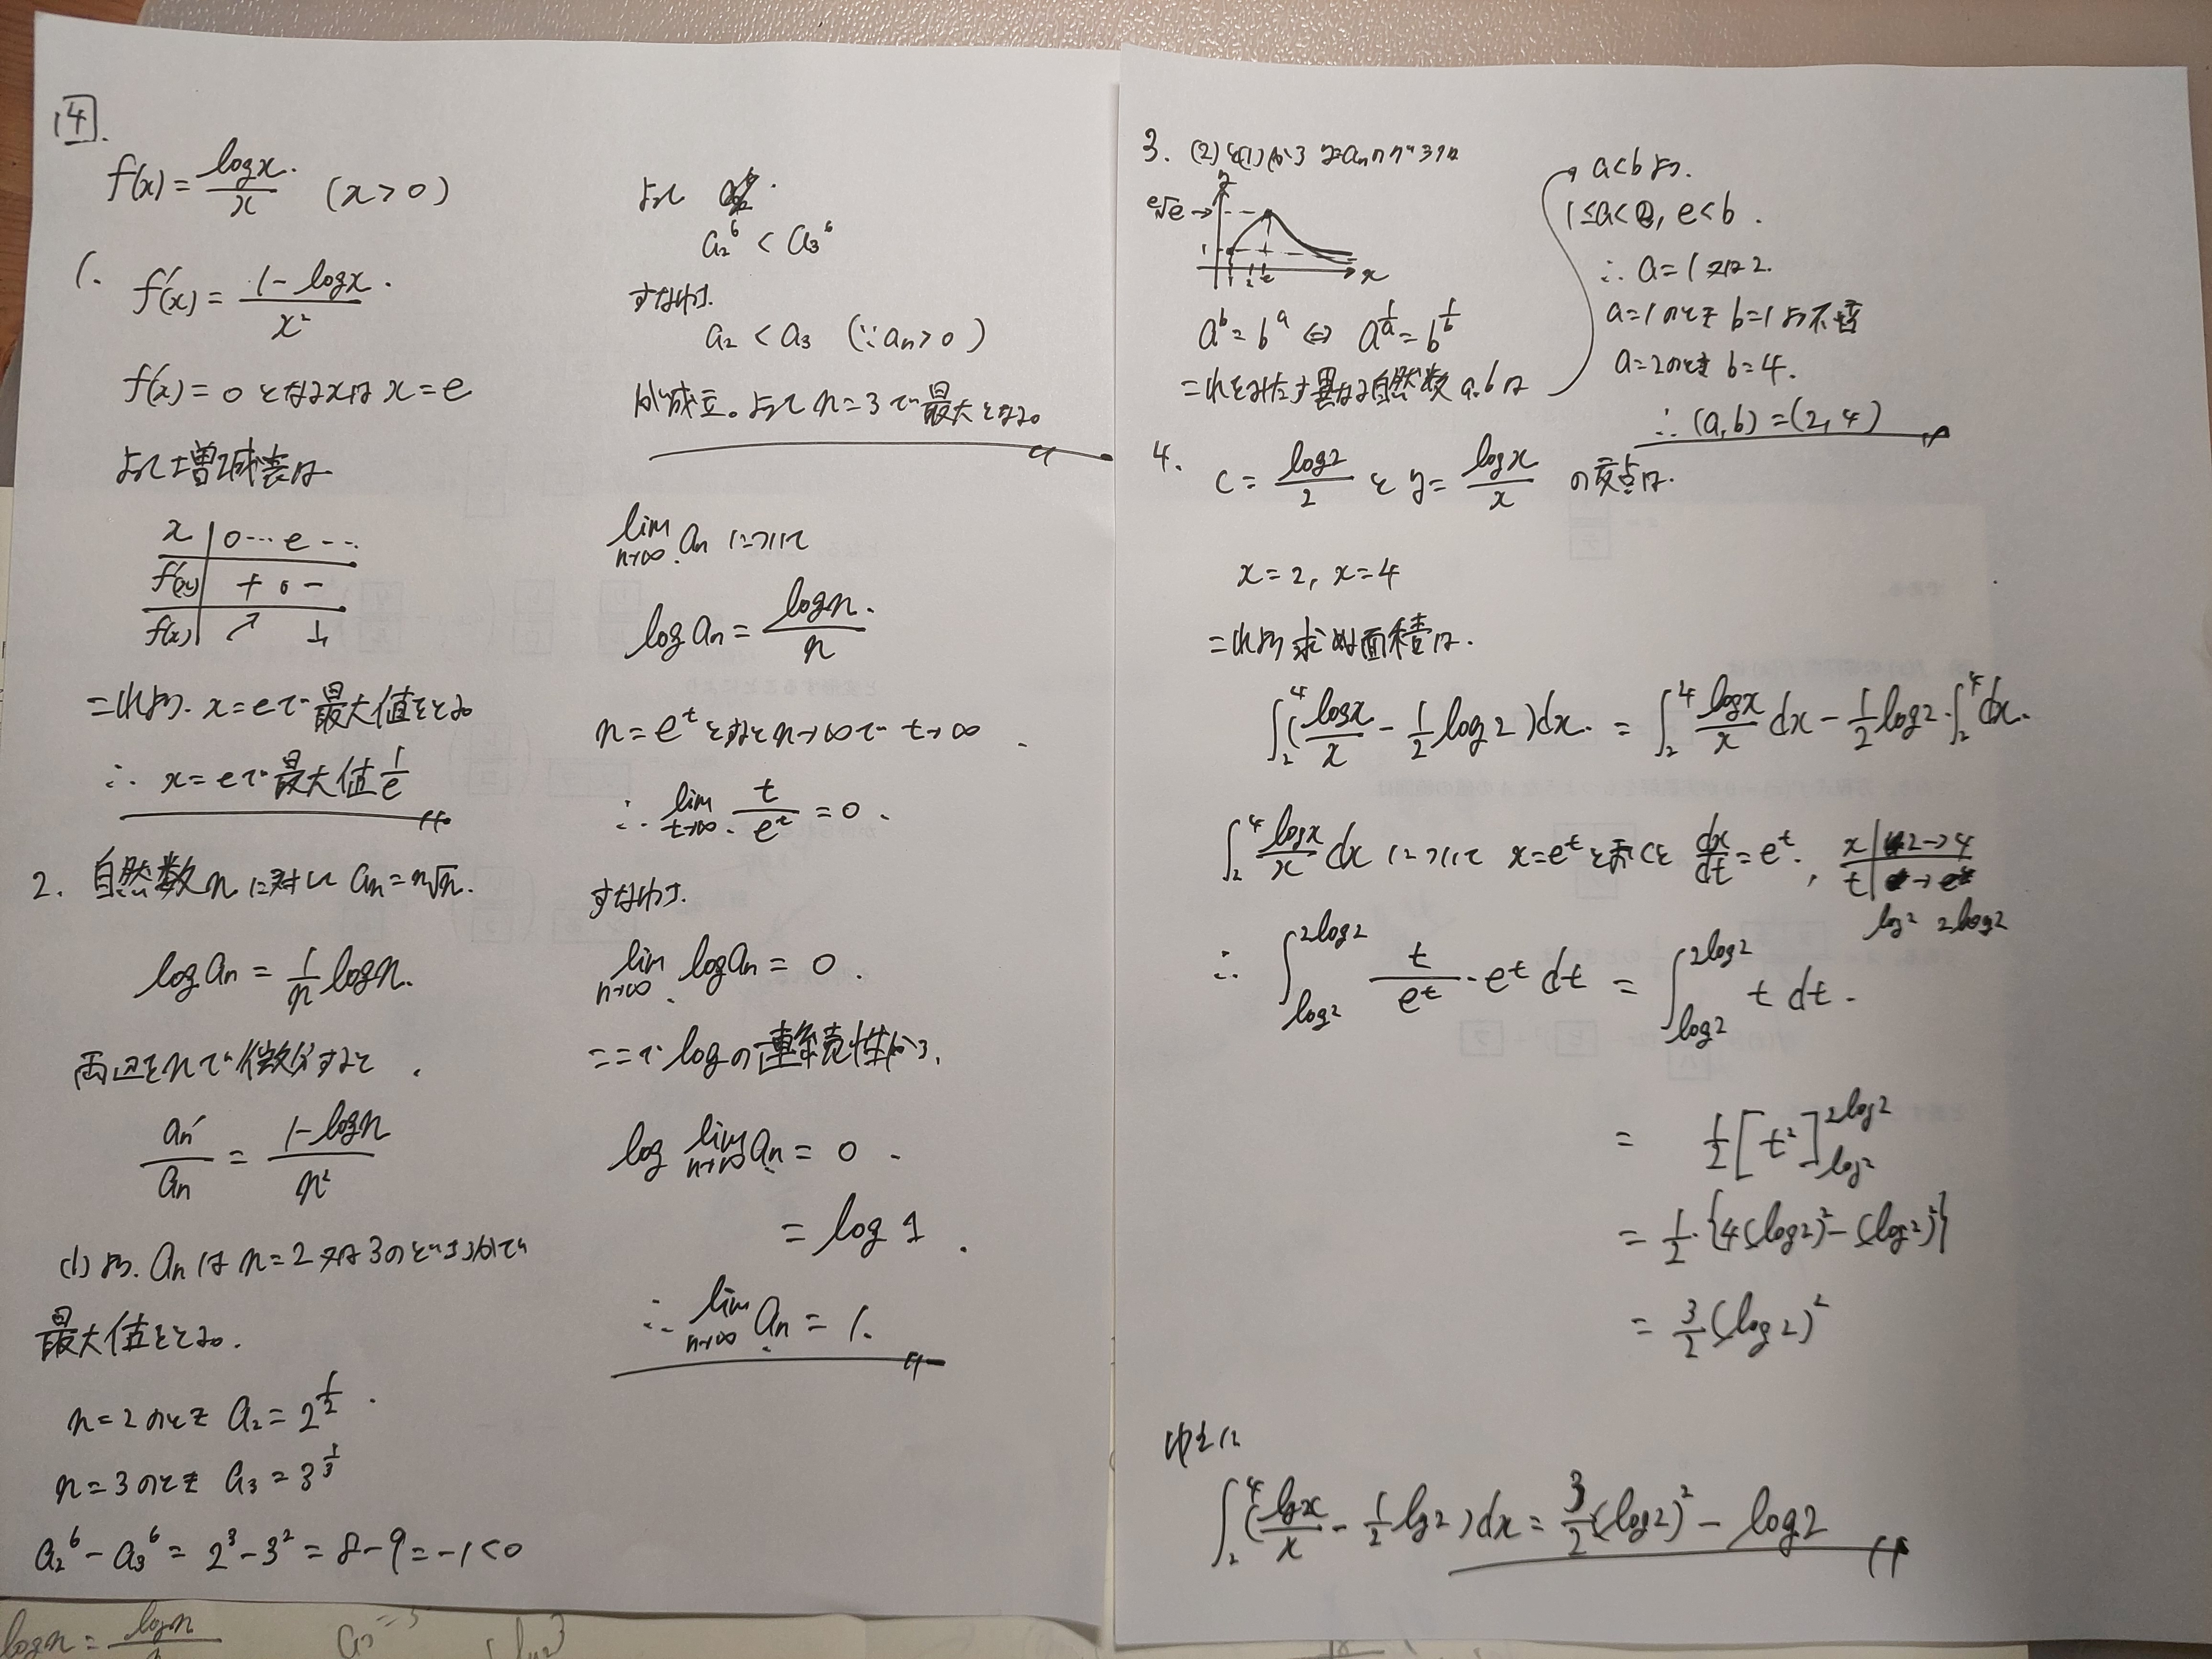 14.
f(x) = log x / x (x > 0)
1. f'(x) = (1 - log x) / x²
f'(x) = 0 となるxは x = e
よって増減表は
x | 0 … e …
f'(x) | + 0 -
f(x) | ↗ ↘
これより. x = e で最大値をとる
∴ x = e で最大値 1/e
2. 自然数 n に対して aₙ = ⁿ√n.
log aₙ = 1/n log n.
両辺をnで微分すると
aₙ'/aₙ = (1 - log n) / n²
(1)より. aₙ は n = 2 又は 3 のどちらかで
最大値をとる.
n = 2 のとき a₂ = 2^(1/2)
n = 3 のとき a₃ = 3^(1/3)
a₂⁶ - a₃⁶ = 2³ - 3² = 8 - 9 = -1 < 0
よって
a₂⁶ < a₃⁶
すなわち.
a₂ < a₃ (∵ aₙ > 0)
が成立。よって n = 3 で最大となる。
lim n→∞ aₙ について
log aₙ = log n / n
n = e^t とすると n→∞ で t→∞
∴ lim t→∞ t / e^t = 0.
すなわち.
lim n→∞ log aₙ = 0.
ここで log の連続性から,
log lim n→∞ aₙ = 0
= log 1.
∴ lim n→∞ aₙ = 1.
3. (2)と(1)から y = aₙ のグラフは
y
e√e →
1
1 2 e x
a^b = b^a ⇔ a^(1/a) = b^(1/b)
これをみたす異なる自然数 a, b は
a < b より.
1 ≤ a < e, e < b.
∴ a = 1 又は 2.
a = 1 のとき b = 1 より不適
a = 2 のとき b = 4.
∴ (a, b) = (2, 4)
4. c = log 2 / 2 と y = log x / x の交点は.
x = 2, x = 4
これより求める面積は.
∫₂⁴ (log x / x - 1/2 log 2) dx. = ∫₂⁴ log x / x dx - 1/2 log 2 · ∫₂⁴ dx.
∫₂⁴ log x / x dx について x = e^t とおくと dx/dt = e^t,
x | 2 → 4
t | →
log 2 2log 2
∴ ∫_{log 2}^{2log 2} t / e^t · e^t dt = ∫_{log 2}^{2log 2} t dt.
= 1/2 [t²]_{log 2}^{2log 2}
= 1/2 · {4(log 2)² - (log 2)²}
= 3/2 (log 2)²
ゆえに
∫₂⁴ (log x / x - 1/2 log 2) dx = 3/2 (log 2)² - log 2
log n = log n